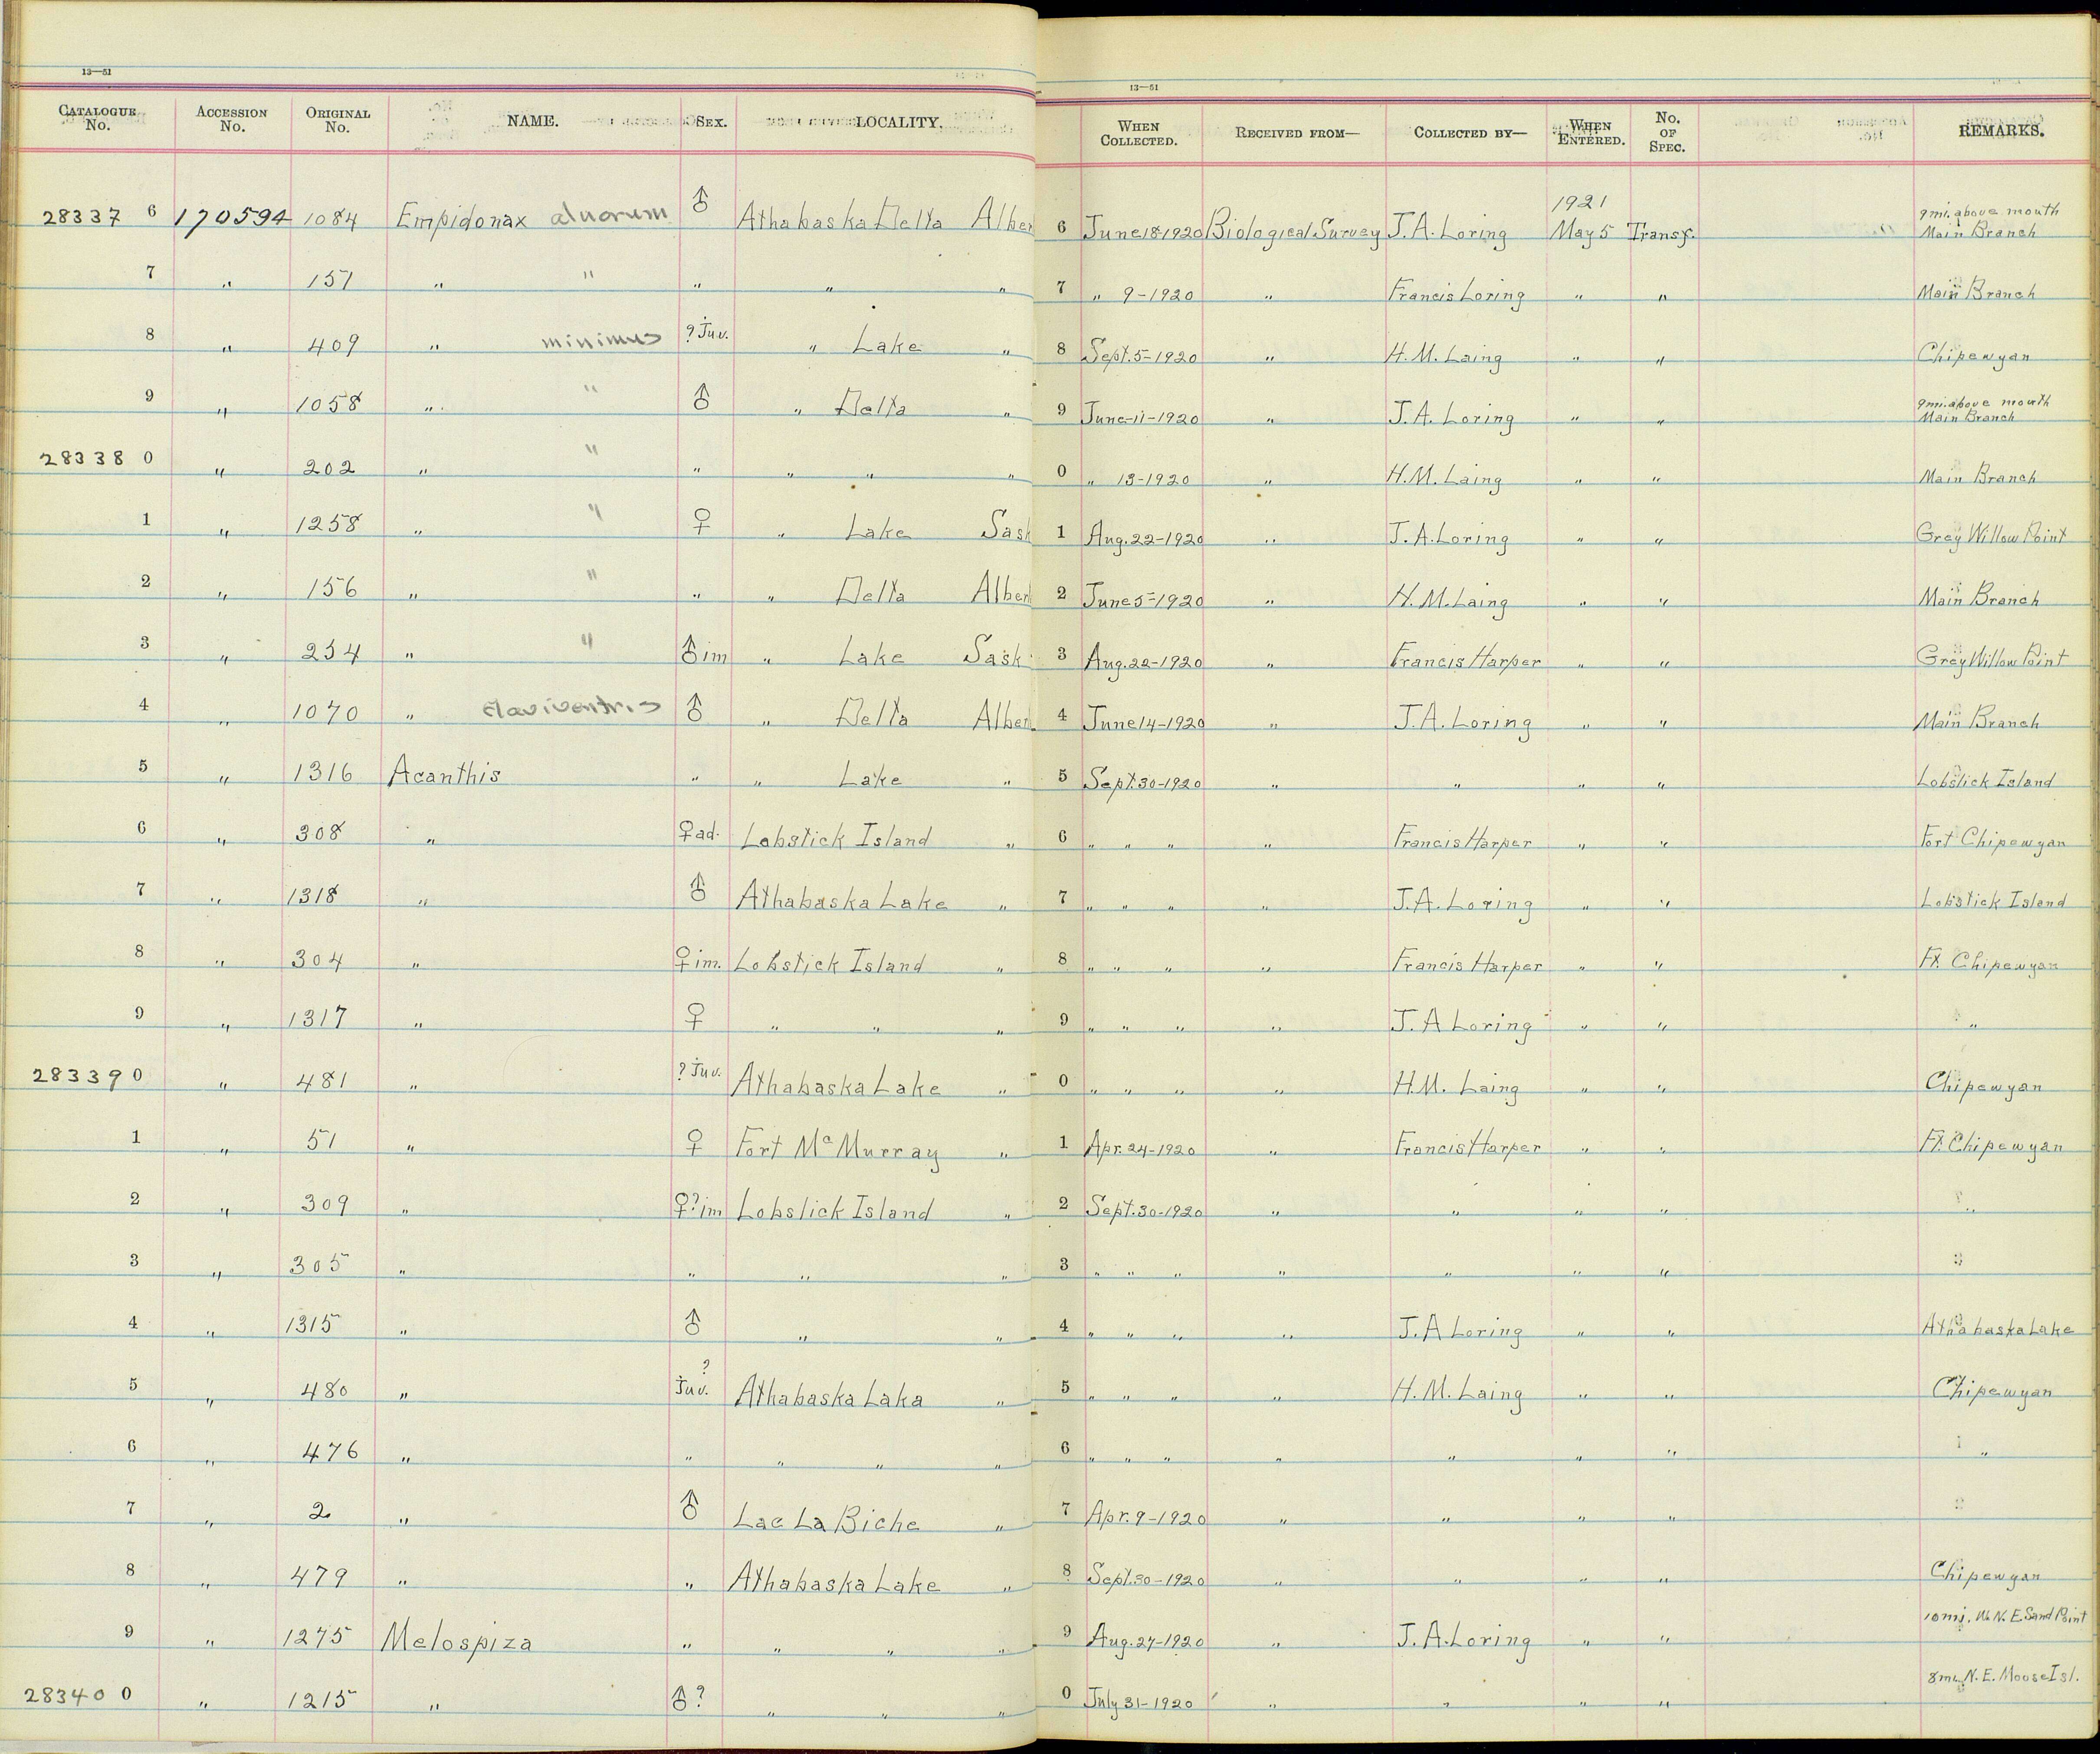 13—51
13—51
CATALOGUE No. ACCESSION No. ORIGINAL No. NAME. SEX. LOCALITY. WHEN COLLECTED. RECEIVED FROM— COLLECTED BY— WHEN ENTERED. No. OF SPEC. REMARKS.
28337 6 170594 1084 Empidonax alnorum ♂ Athabaska Delta Alber 6 June 18-1920 Biological Survey J.A. Loring 1921 May 5 Transf. 9 mi. above mouth Main Branch
7 " 157 " " " " " 7 " 9-1920 " Francis Loring " " Main Branch
8 " 409 " minimus ? Juv. " Lake " 8 Sept. 5-1920 " H. M. Laing " " Chipewyan
9 " 1058 " " ♂ " Delta " 9 June-11-1920 " J.A. Loring " " 9 mi. above mouth Main Branch
28338 0 " 202 " " " " " " 0 " 13-1920 " H.M. Laing " " Main Branch
1 " 1258 " " ♀ " Lake Sask 1 Aug. 22-1920 " J.A. Loring " " Grey Willow Point
2 " 156 " " " " Delta Alber 2 June 5-1920 " H. M. Laing " " Main Branch
3 " 254 " " ♂ im " Lake Sask 3 Aug. 22-1920 " Francis Harper " " Grey Willow Point
4 " 1070 " flaviventris ♂ " Delta Alber 4 June 14-1920 " J.A. Loring " " Main Branch
5 " 1316 Acanthis " " Lake " 5 Sept. 30-1920 " " " " Lobstick Island
6 " 308 " ♀ ad. Lobstick Island " 6 " " " " Francis Harper " " Fort Chipewyan
7 " 1318 " ♂ Athabaska Lake " 7 " " " " J.A. Loring " " Lobstick Island
8 " 304 " ♀ im. Lobstick Island " 8 " " " " Francis Harper " " Ft. Chipewyan
9 " 1317 " ♀ " " " 9 " " " " J. A Loring " " "
28339 0 " 481 " ? Juv. Athabaska Lake " 0 " " " " H.M. Laing " " Chipewyan
1 " 51 " ♀ Fort Mc Murray " 1 Apr. 24-1920 " Francis Harper " " Ft. Chipewyan
2 " 309 " ♀? im Lobstick Island " 2 Sept. 30-1920 " " " " "
3 " 305 " " " " 3 " " " " " " "
4 " 1315 " ♂ " " 4 " " " " J. A Loring " " Athabaska Lake
5 " 480 " ? Juv. Athabaska Laka " 5 " " " " H. M. Laing " " Chipewyan
6 " 476 " " " " " 6 " " " " " " " "
7 " 2 " ♂ Lac La Biche " 7 Apr. 9-1920 " " " "
8 " 479 " " Athabaska Lake " 8 Sept. 30-1920 " " " " Chipewyan
9 " 1275 Melospiza " " " " 9 Aug. 27-1920 " J. A. Loring " " 10 mi. W. N. E. Sand Point
28340 0 " 1215 " ♂? " " " 0 July 31-1920 " " " " 8 mi. N. E. Moose Isl.